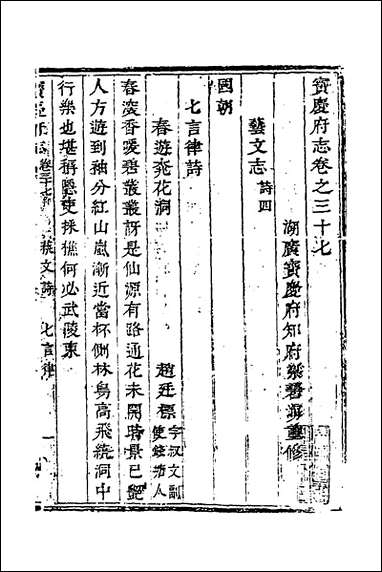 寶慶府志卷之三十七
湖廣寶慶府知府梁碧海重修
藝文志 詩四
國朝
七言律詩
春遊桃花洞 趙廷標 字叔文副使錢塘人
春凌香暖碧叢叢訝是仙源有路通花未開時景已艷
人方遊到袖分紅山嵐漸近當杯側林鳥高飛繞洞中
行樂也堪稱隱吏採樵何必武陵東
寶慶府志 卷三十七 藝文詩 七言律 一